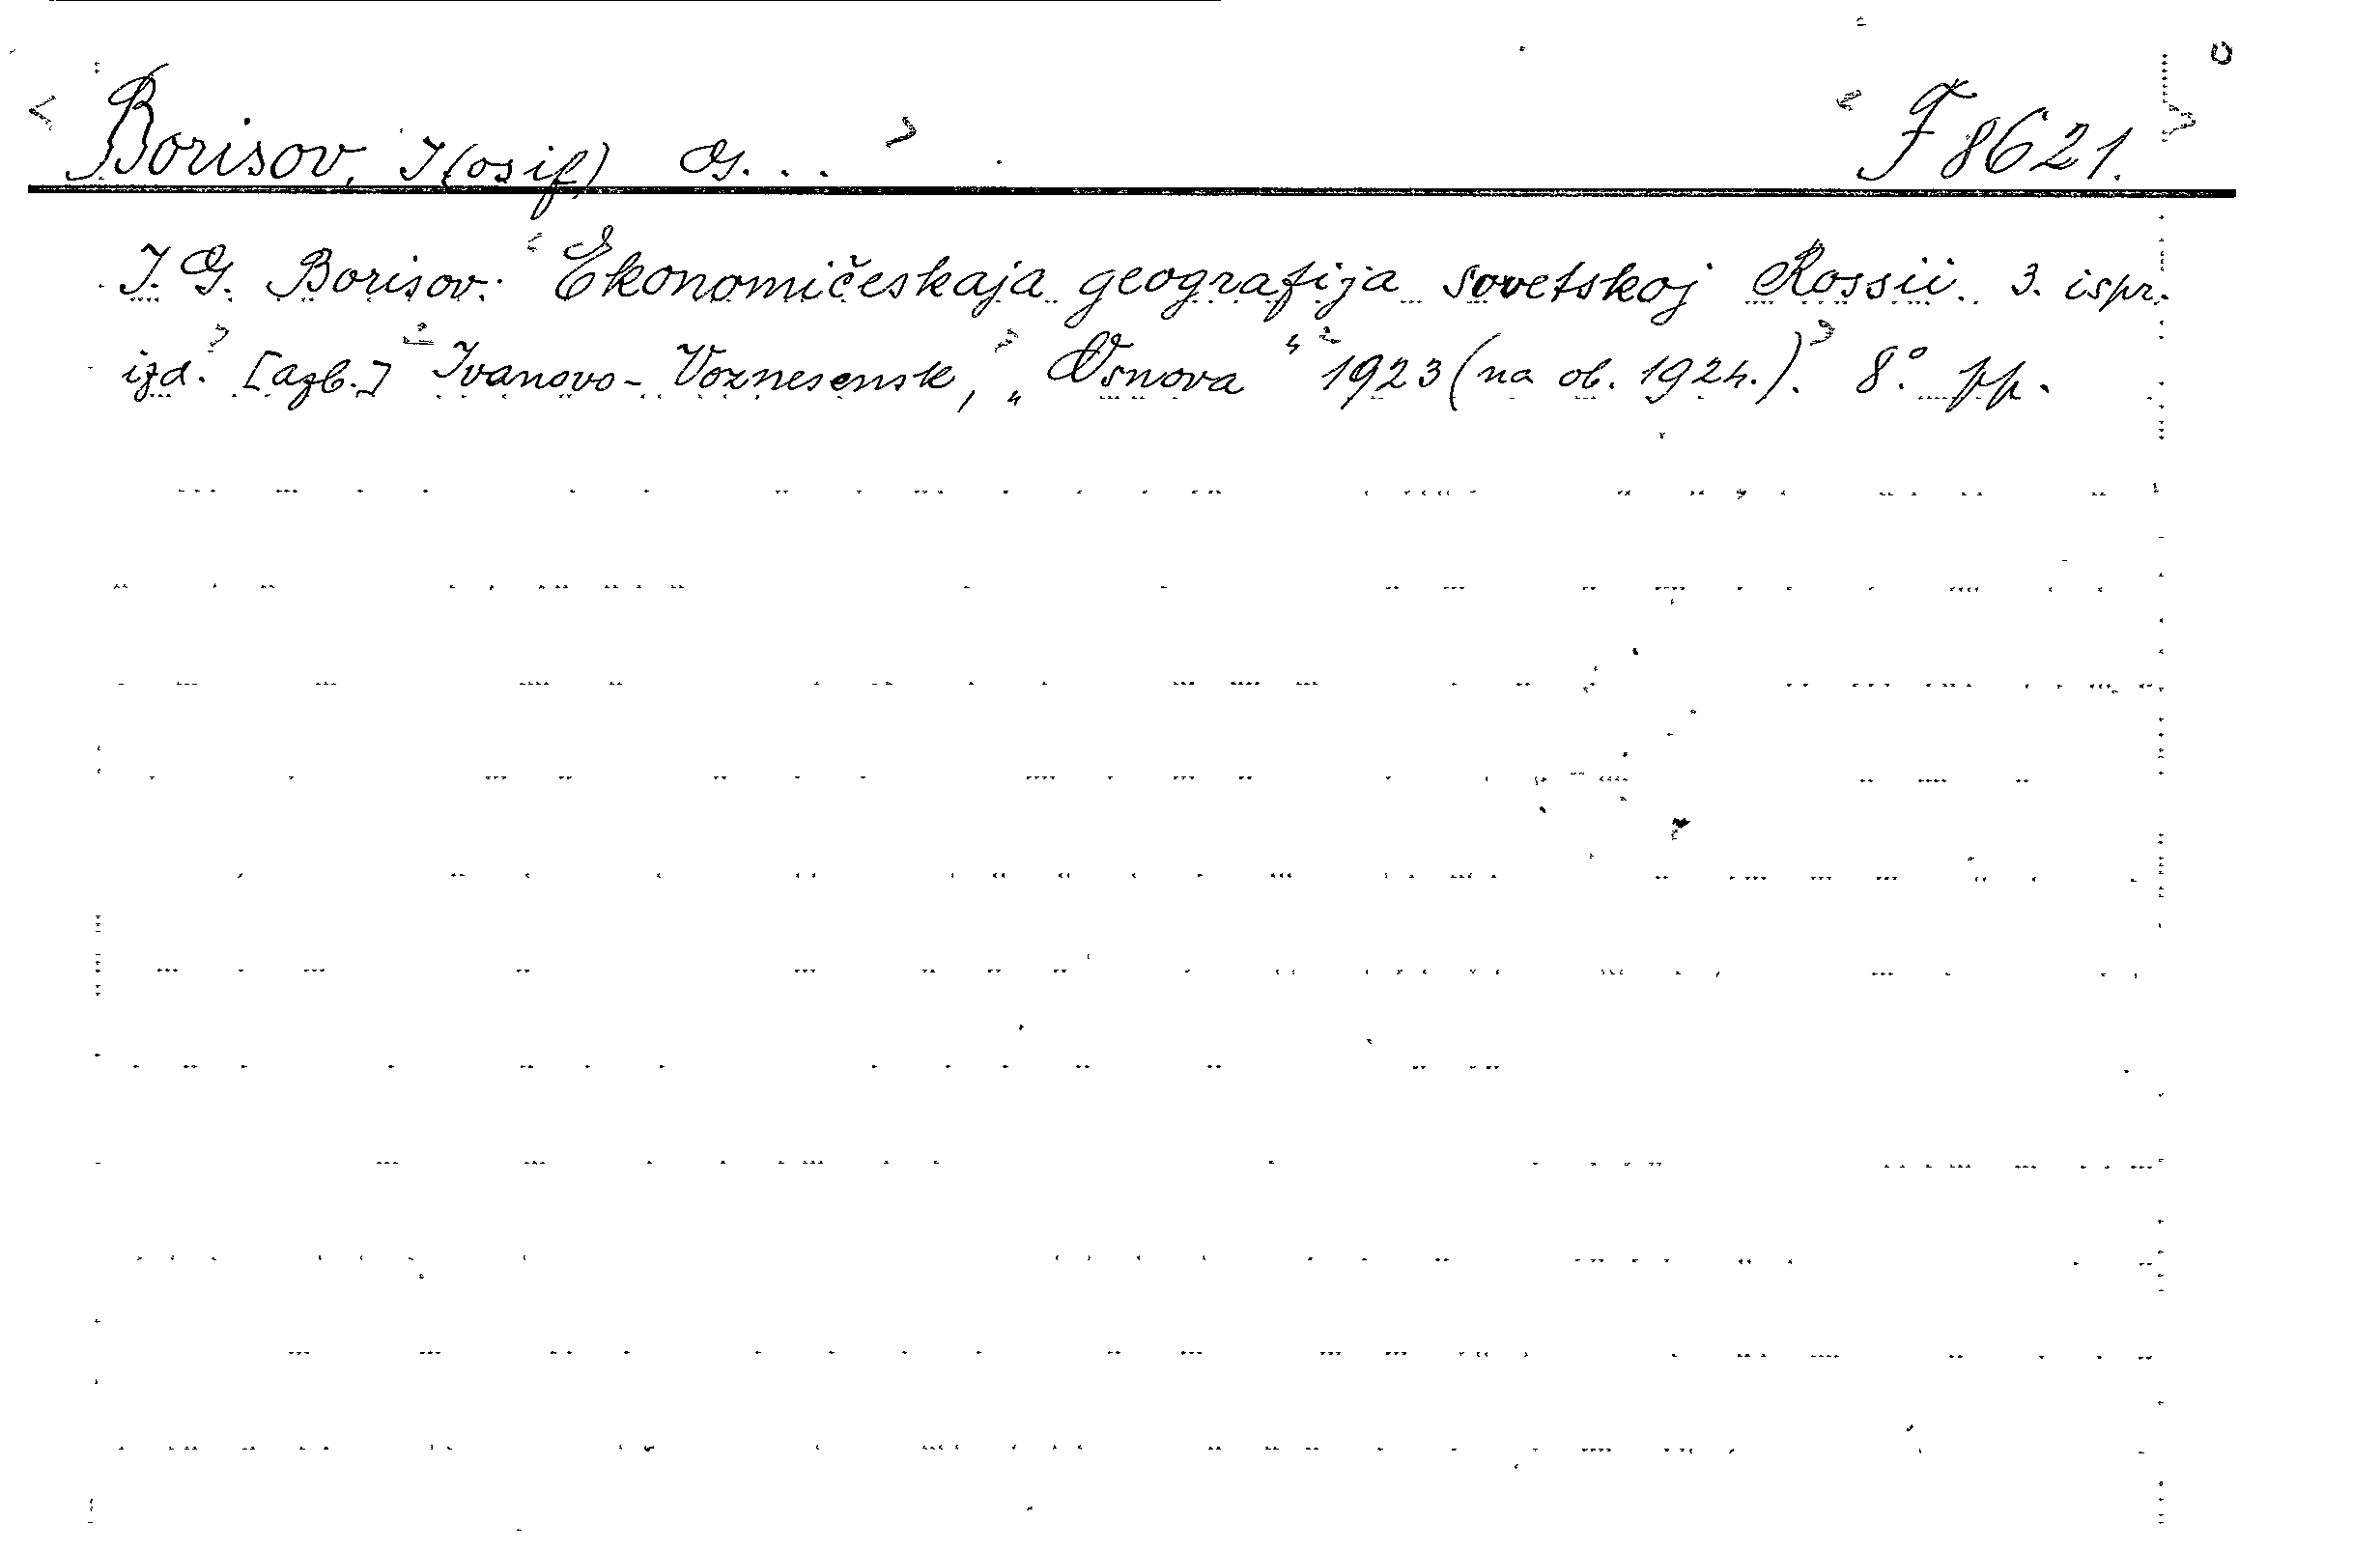 Borisov, I(osif) G. . . F 8621.
I. G. Borisov: Ekonomičeskaja geografija sovetskoj Rossii. 3. ispr.
izd. [azb.] Ivanovo-Voznesensk, „Osnova“ 1923 (na ob. 1924.). 8° pp.